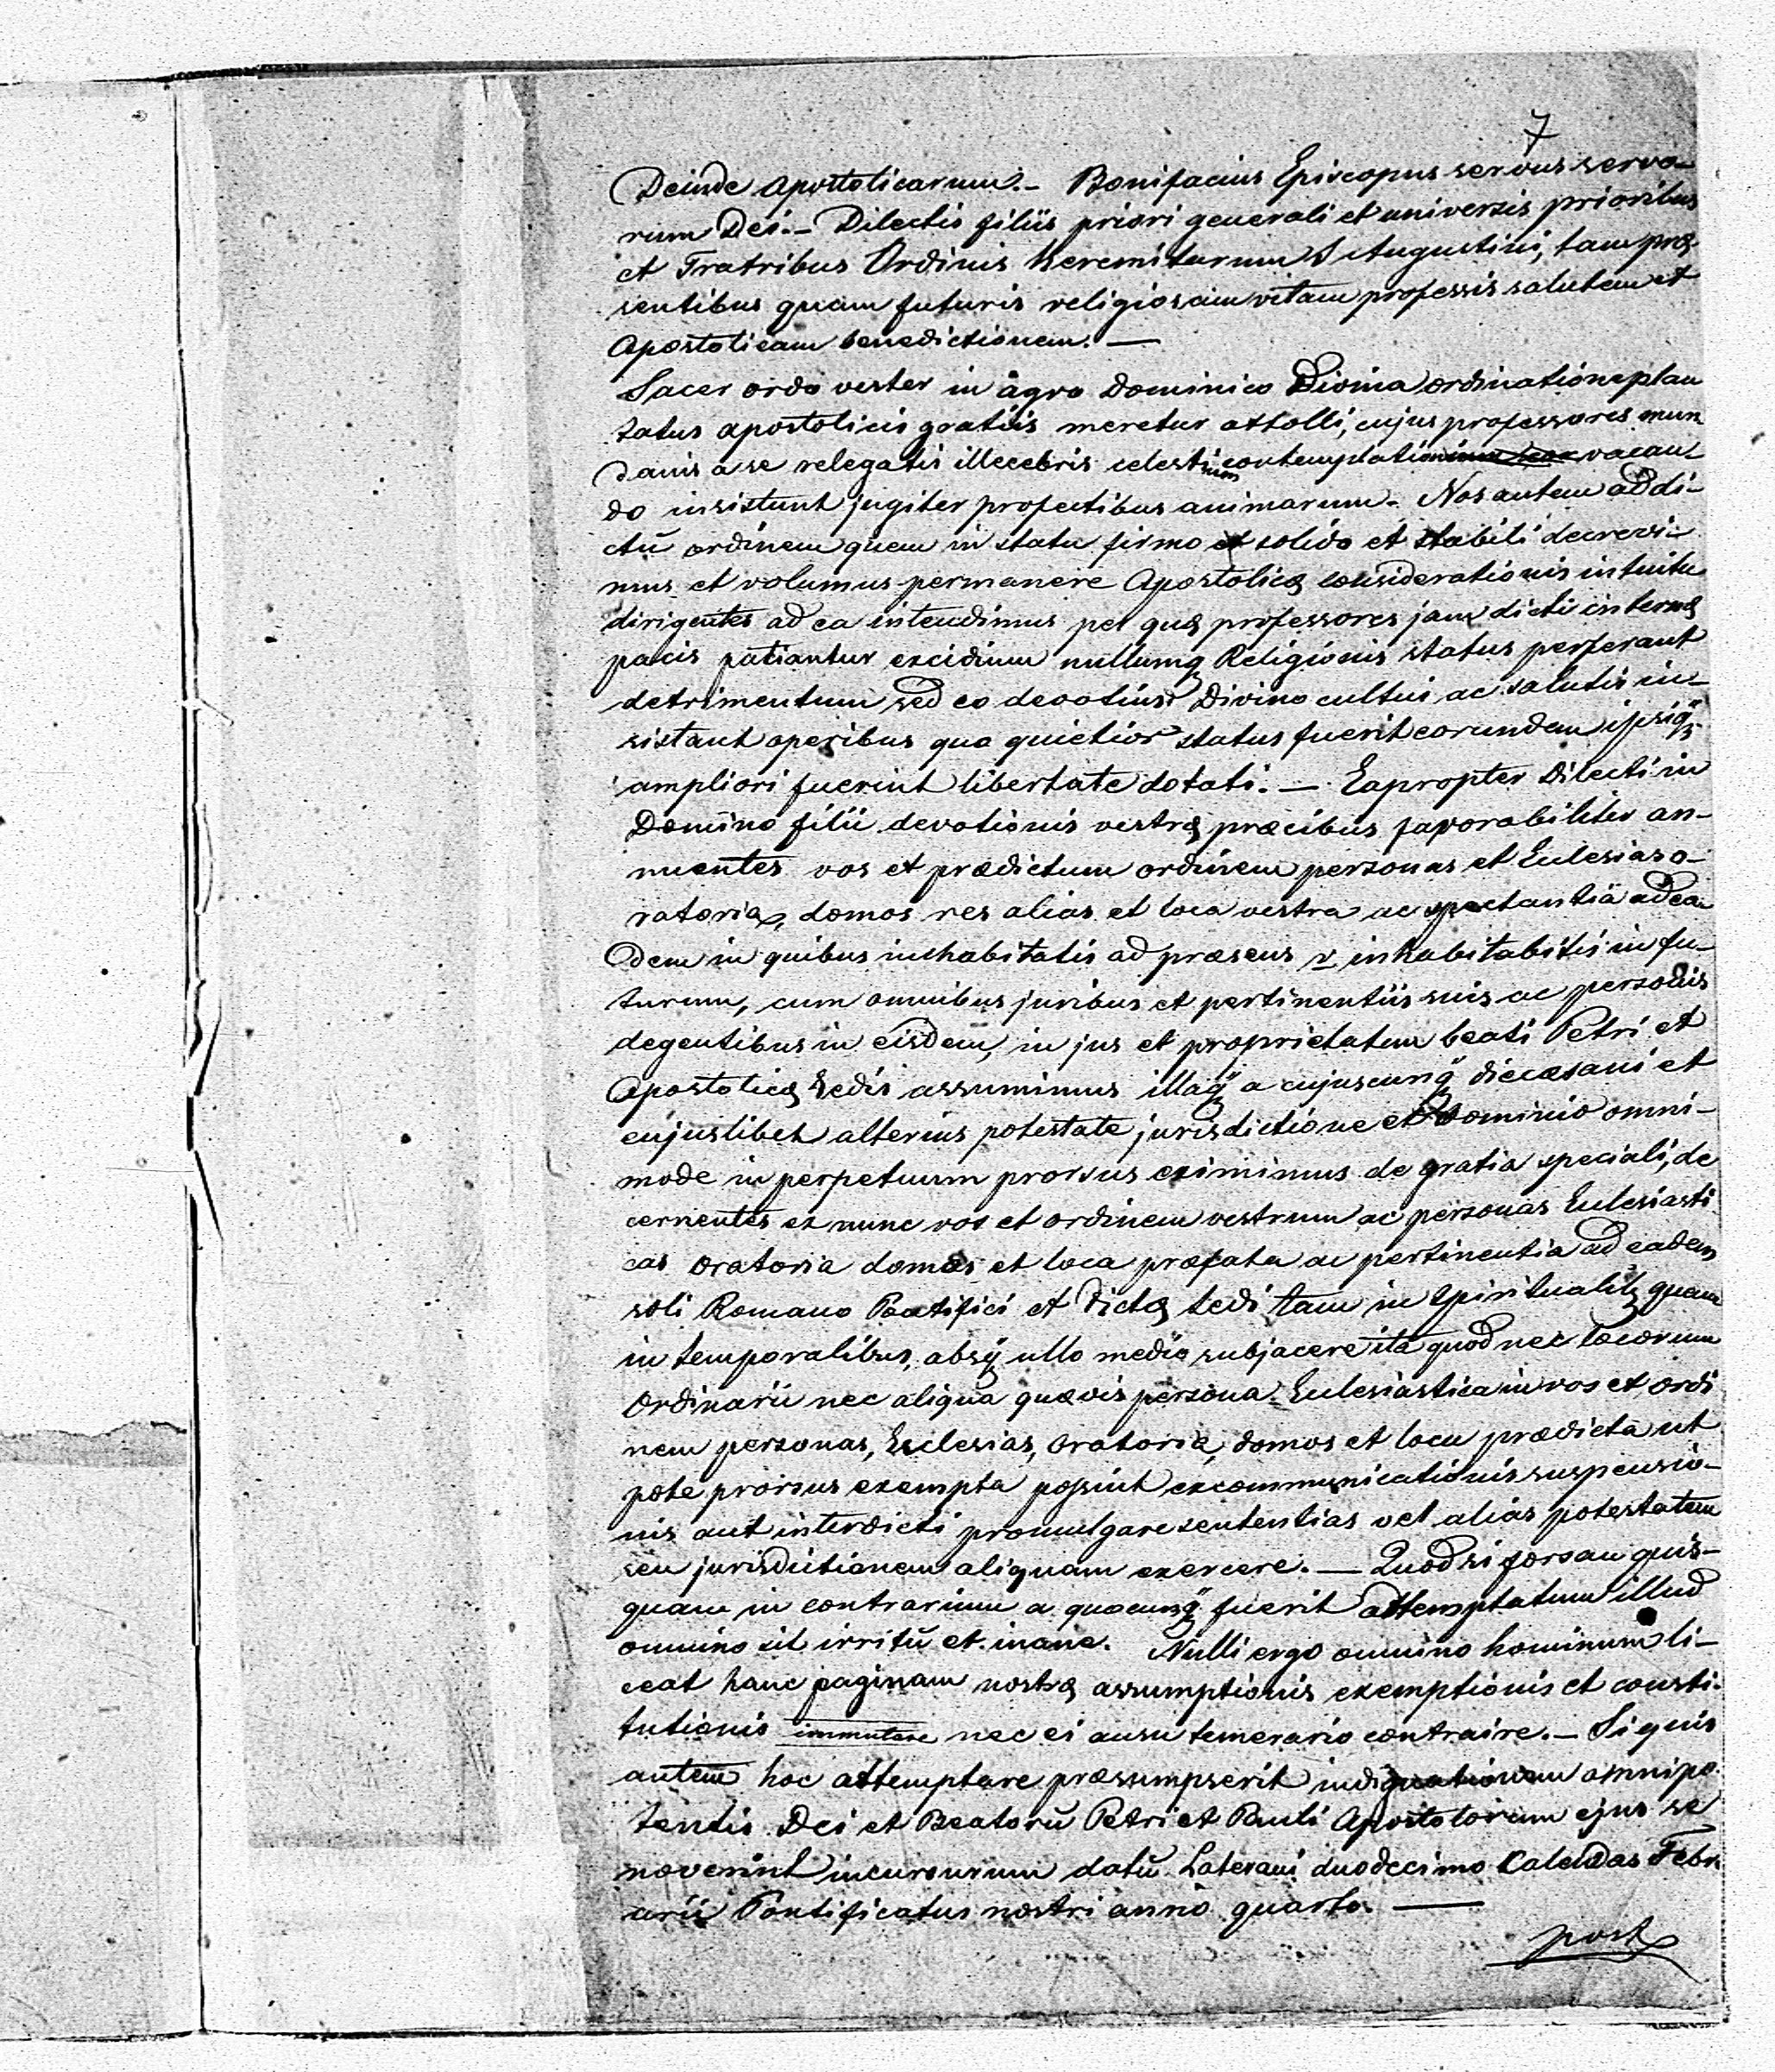 7
Deinde Apostolicarum.- Bonifacius Episcopus servus servo-
rum Dei.- Dilectis filiis priori generali et universis prioribus
et Fratribus Ordinis heremitarum S Augustini, tam præ
sentibus quam futuris religiosam vitam professis salutem et
Apostolicam benedictionem. —
Sacer ordo vester in agro Dominico Divina ordinatione plan
tatus apostolicis gratiis meretur attolli, cujus professores mun
danis a se relegatis illecebris celestium contemplationi vacan
do insistunt jugiter profectibus animarum. Nos autem ad di-
ctū ordinem quem in statu firmo et solido et stabili decrevi-
mus et volumus permanere Apostolicę considerationis intuitu
dirigentes ad ea intendimus per quę professores jam dicti internę
pacis patiantur excidium nullumq Religionis status perferant
detrimentum sed eo devotius Divino cultui ac salutis in-
sistant operibus quo quietior status fuerit eorundem ipsiq
ampliori fuerint libertate dotati. — Eapropter Dilecti in
Domino filii devotionis vestrę præcibus favorabiliter an-
nuentes vos et prædictum ordinem personas et Eclesias o-
ratoria, domos res alias et loca vestra ac spectantia ad ea
dem in quibus inhabitatis ad præsens v inhabitabitis in fu-
turum, cum omnibus juribus et pertinentiis suis ac personis
degentibus in eisdem, in jus et proprietatem beati Petri et
Apostolicę Sedis assumimus illaq a cujuscunq diecæsani et
cujuslibet alterius potestate jurisdictione et Dominio omni-
mode in perpetuum prorsus eximimus de gratia speciali, de
cernentes ex nunc vos et ordinem vestrum ac personas Eclesiasti
cas oratoria domos et loca præfata ac pertinentia ad eadem
soli Romano Pontifici et dictę sedi tam in spiritualibȝ quam
in temporalibus, absq ullo medio subjacere ita quod nec locorum
Ordinarii nec aliqua quævis persona Eclesiastica in vos et ordi
nem personas, Eclesias, oratoria, domos et loca prædicta ut
pote prorsus exempta possint excommunicationis suspensio-
nis aut interdicti promulgare sententias vel alias potestatem
seu jurisdictionem aliquam exercere. — Quod si forsan quis-
quam in contrarium a quocunq fuerit attemptatum illud
omnino sit irritū et inane. Nulli ergo omnino hominum li-
ceat hanc paginam nostrę assumptionis exemptionis et consti-
tutionis immutare nec ei ausu temerario contraire.- Si quis
autem hoc attemptare præsumpserit indignationem omnipo
tentis Dei et Beatorū Petri et Pauli Apostolorum ejus se
noverint incursurum datū Laterani duodecimo Calendas Febr
uarii Pontificatus nostri anno quarto. —
post